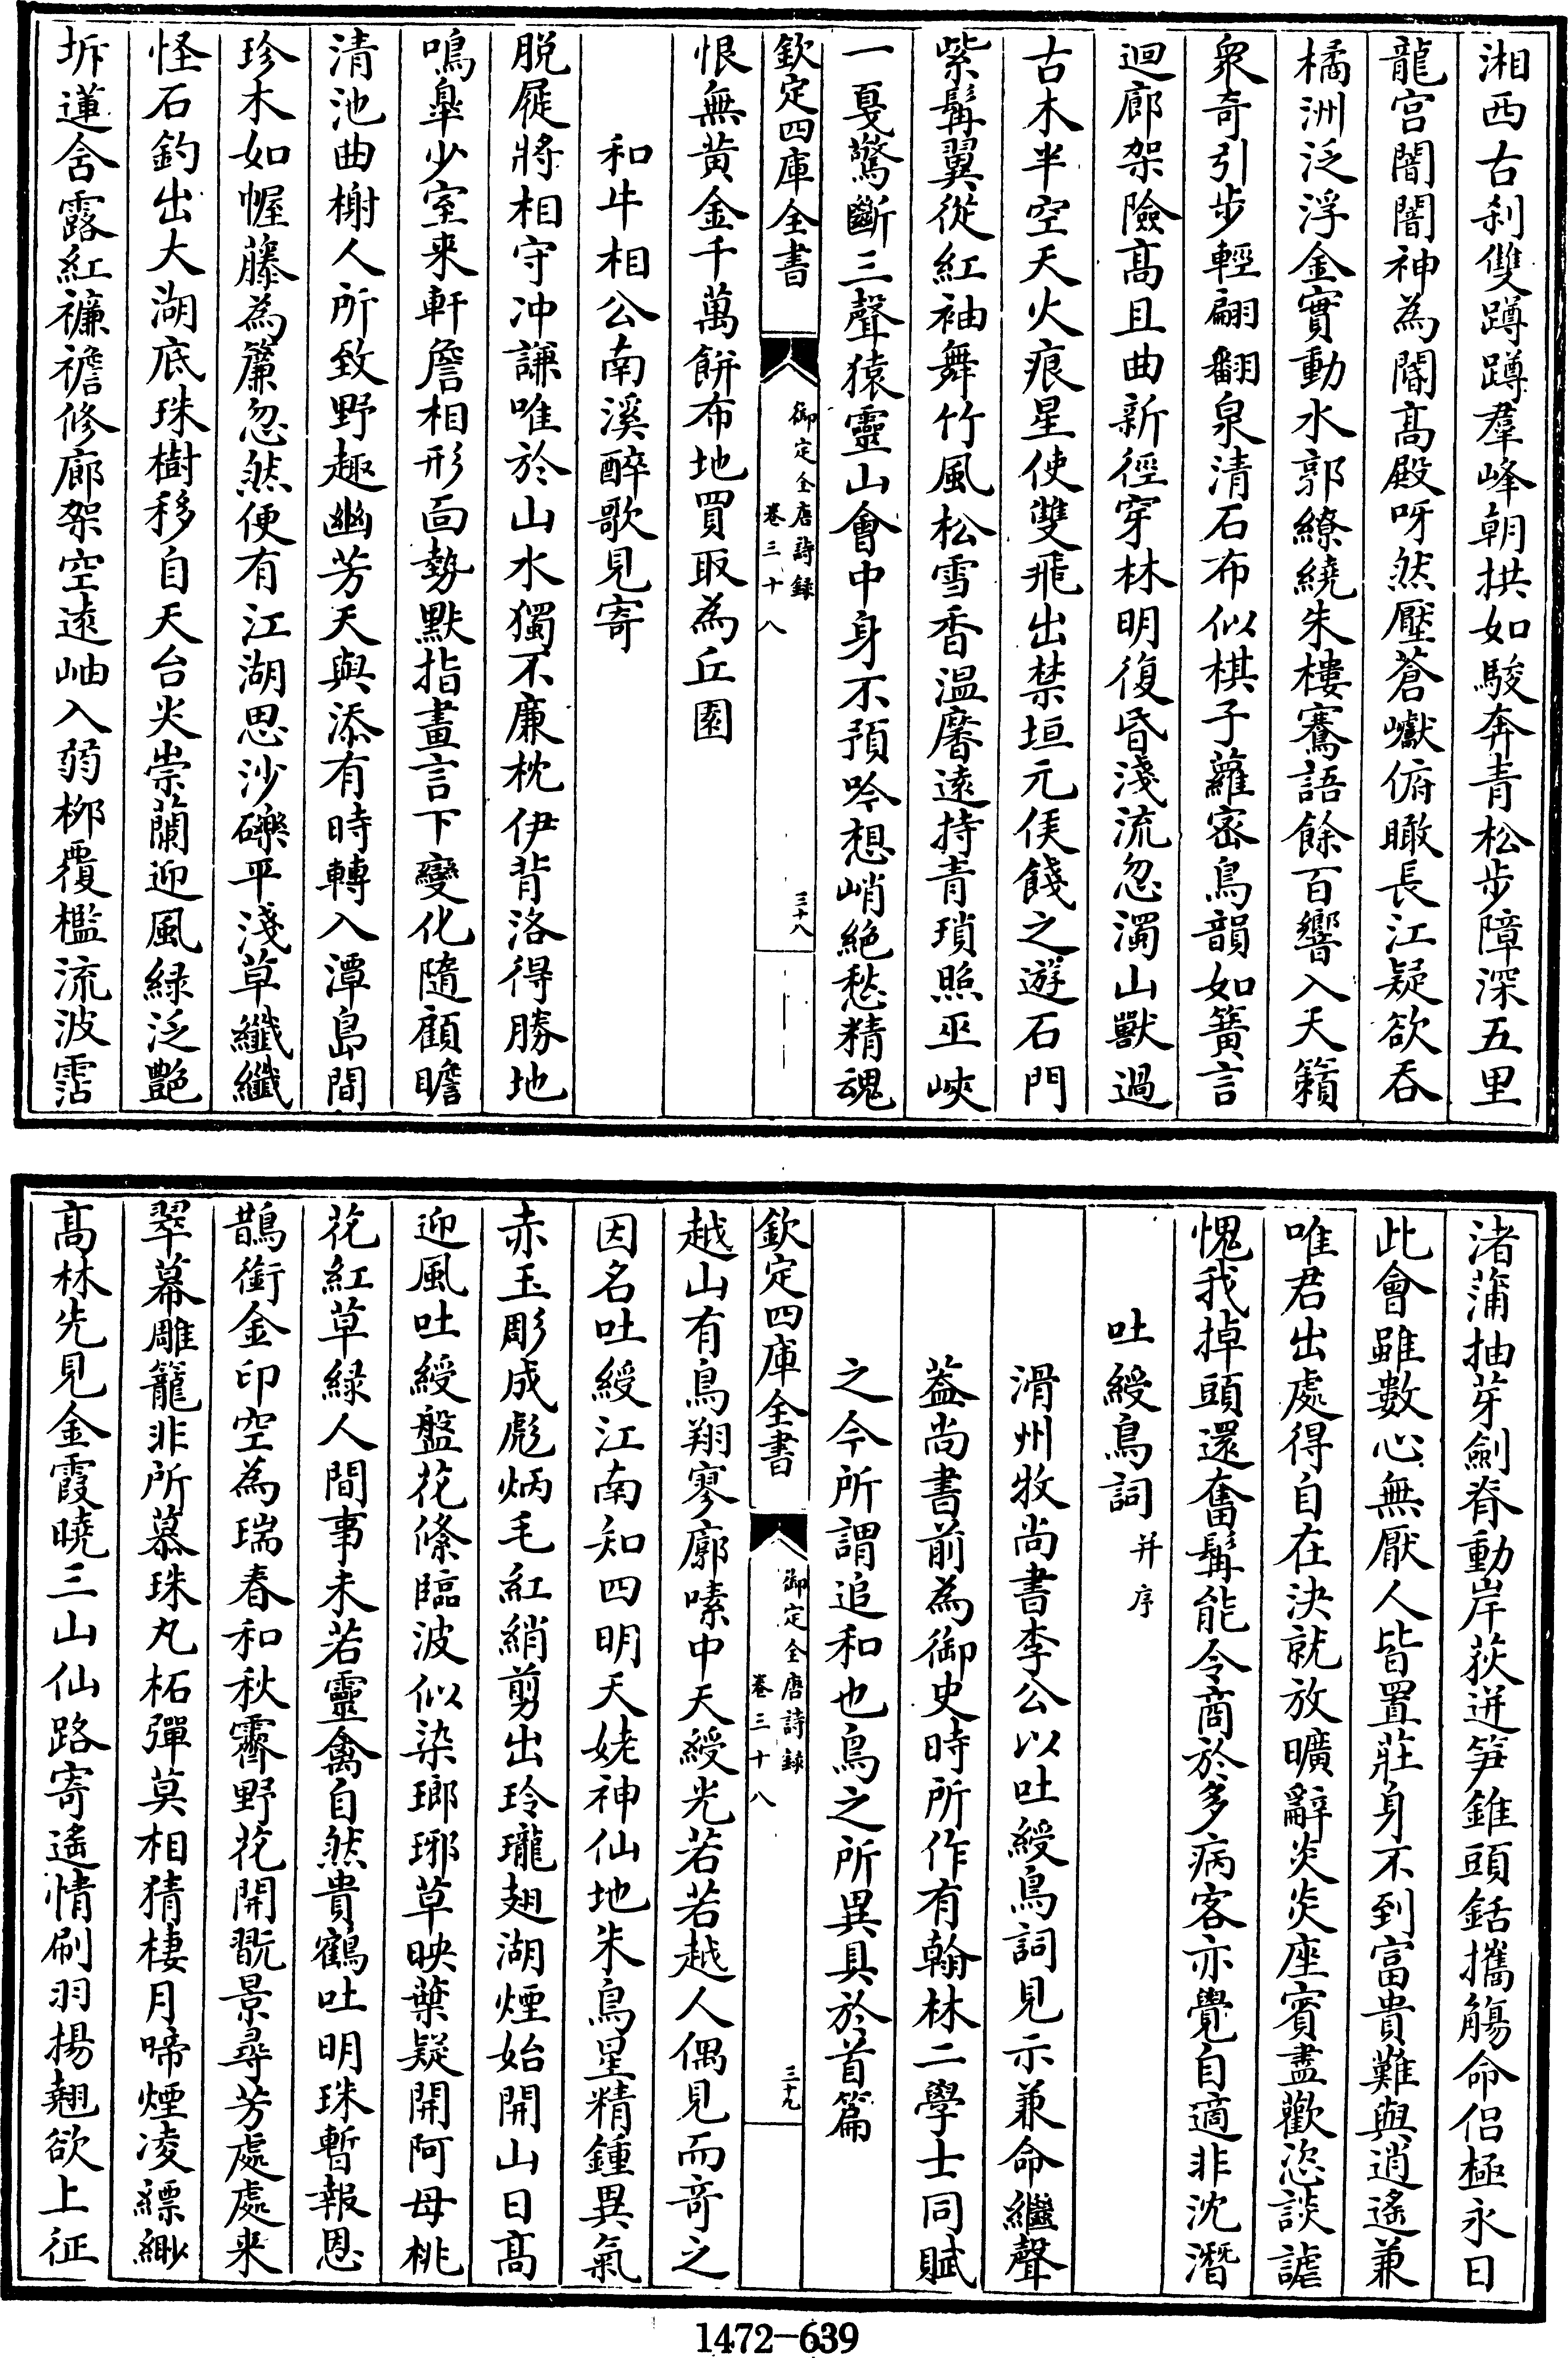 湘西古刹雙蹲蹲羣峰朝拱如駿奔青松步障深五里
龍宫闇闇神為閽高殿呀然壓蒼巘俯瞰長江疑欲吞
橘洲泛浮金實動水郭繚繞朱樓鶱語餘百響入天籟
衆奇引步輕翩翻泉清石布似棋子蘿密鳥韻如簧言
迴廊架險高且曲新徑穿林明復昏淺流忽濁山獸過
古木半空天火痕星使雙飛出禁垣元侯餞之遊石門
紫髯翼從紅袖舞竹風松雪香溫黁遠持青瑣照巫峽
一戛驚斷三聲猿靈山會中身不預吟想峭絶愁精魂
欽定四庫全書
御定全唐詩録
卷三十八
三十八
恨無黄金千萬餅布地買取為丘園
和牛相公南溪醉歌見寄
脱屣將相守冲謙唯於山水獨不廉枕伊背洛得勝地
鳴臯少室来軒簷相形面勢默指畫言下變化隨顧瞻
清池曲榭人所致野趣幽芳天與添有時轉入潭島間
珍木如幄藤為簾忽然便有江湖思沙礫平淺草纖纖
怪石釣出大湖底珠樹移自天台尖崇蘭迎風緑泛艶
坼蓮含露紅襜襜修廊架空遠岫入弱栁覆檻流波霑
渚蒲抽芽劍脊動岸荻迸筍錐頭銛攜觴命侣極永日
此會雖數心無厭人皆置莊身不到富貴難與逍遙兼
唯君出處得自在決就放曠辭炎炎座賓盡歡恣談謔
愧我掉頭還奮髯能令商於多病客亦覺自適非沈潛
吐綬鳥詞并序
滑州牧尚書李公以吐綬鳥詞見示兼命繼聲
葢尚書前為御史時所作有翰林二學士同賦
之今所謂追和也鳥之所異具於首篇
欽定四庫全書
御定全唐詩録
卷三十八
三十九
越山有鳥翔寥廓嗉中天綬光若若越人偶見而奇之
因名吐綬江南知四明天姥神仙地朱鳥星精鍾異氣
赤玉彫成彪炳毛紅綃剪出玲瓏翅湖煙始開山日高
迎風吐綬盤花絛臨波似染瑯琊草映葉疑開阿母桃
花紅草緑人間事未若靈禽自然貴鶴吐明珠暫報恩
鵲銜金印空為瑞春和秋霽野花開翫景尋芳處處来
翠幕雕籠非所慕珠丸柘彈莫相猜棲月啼煙凌縹緲
高林先見金霞曉三山仙路寄遙情刷羽揚翹欲上征
1472-639